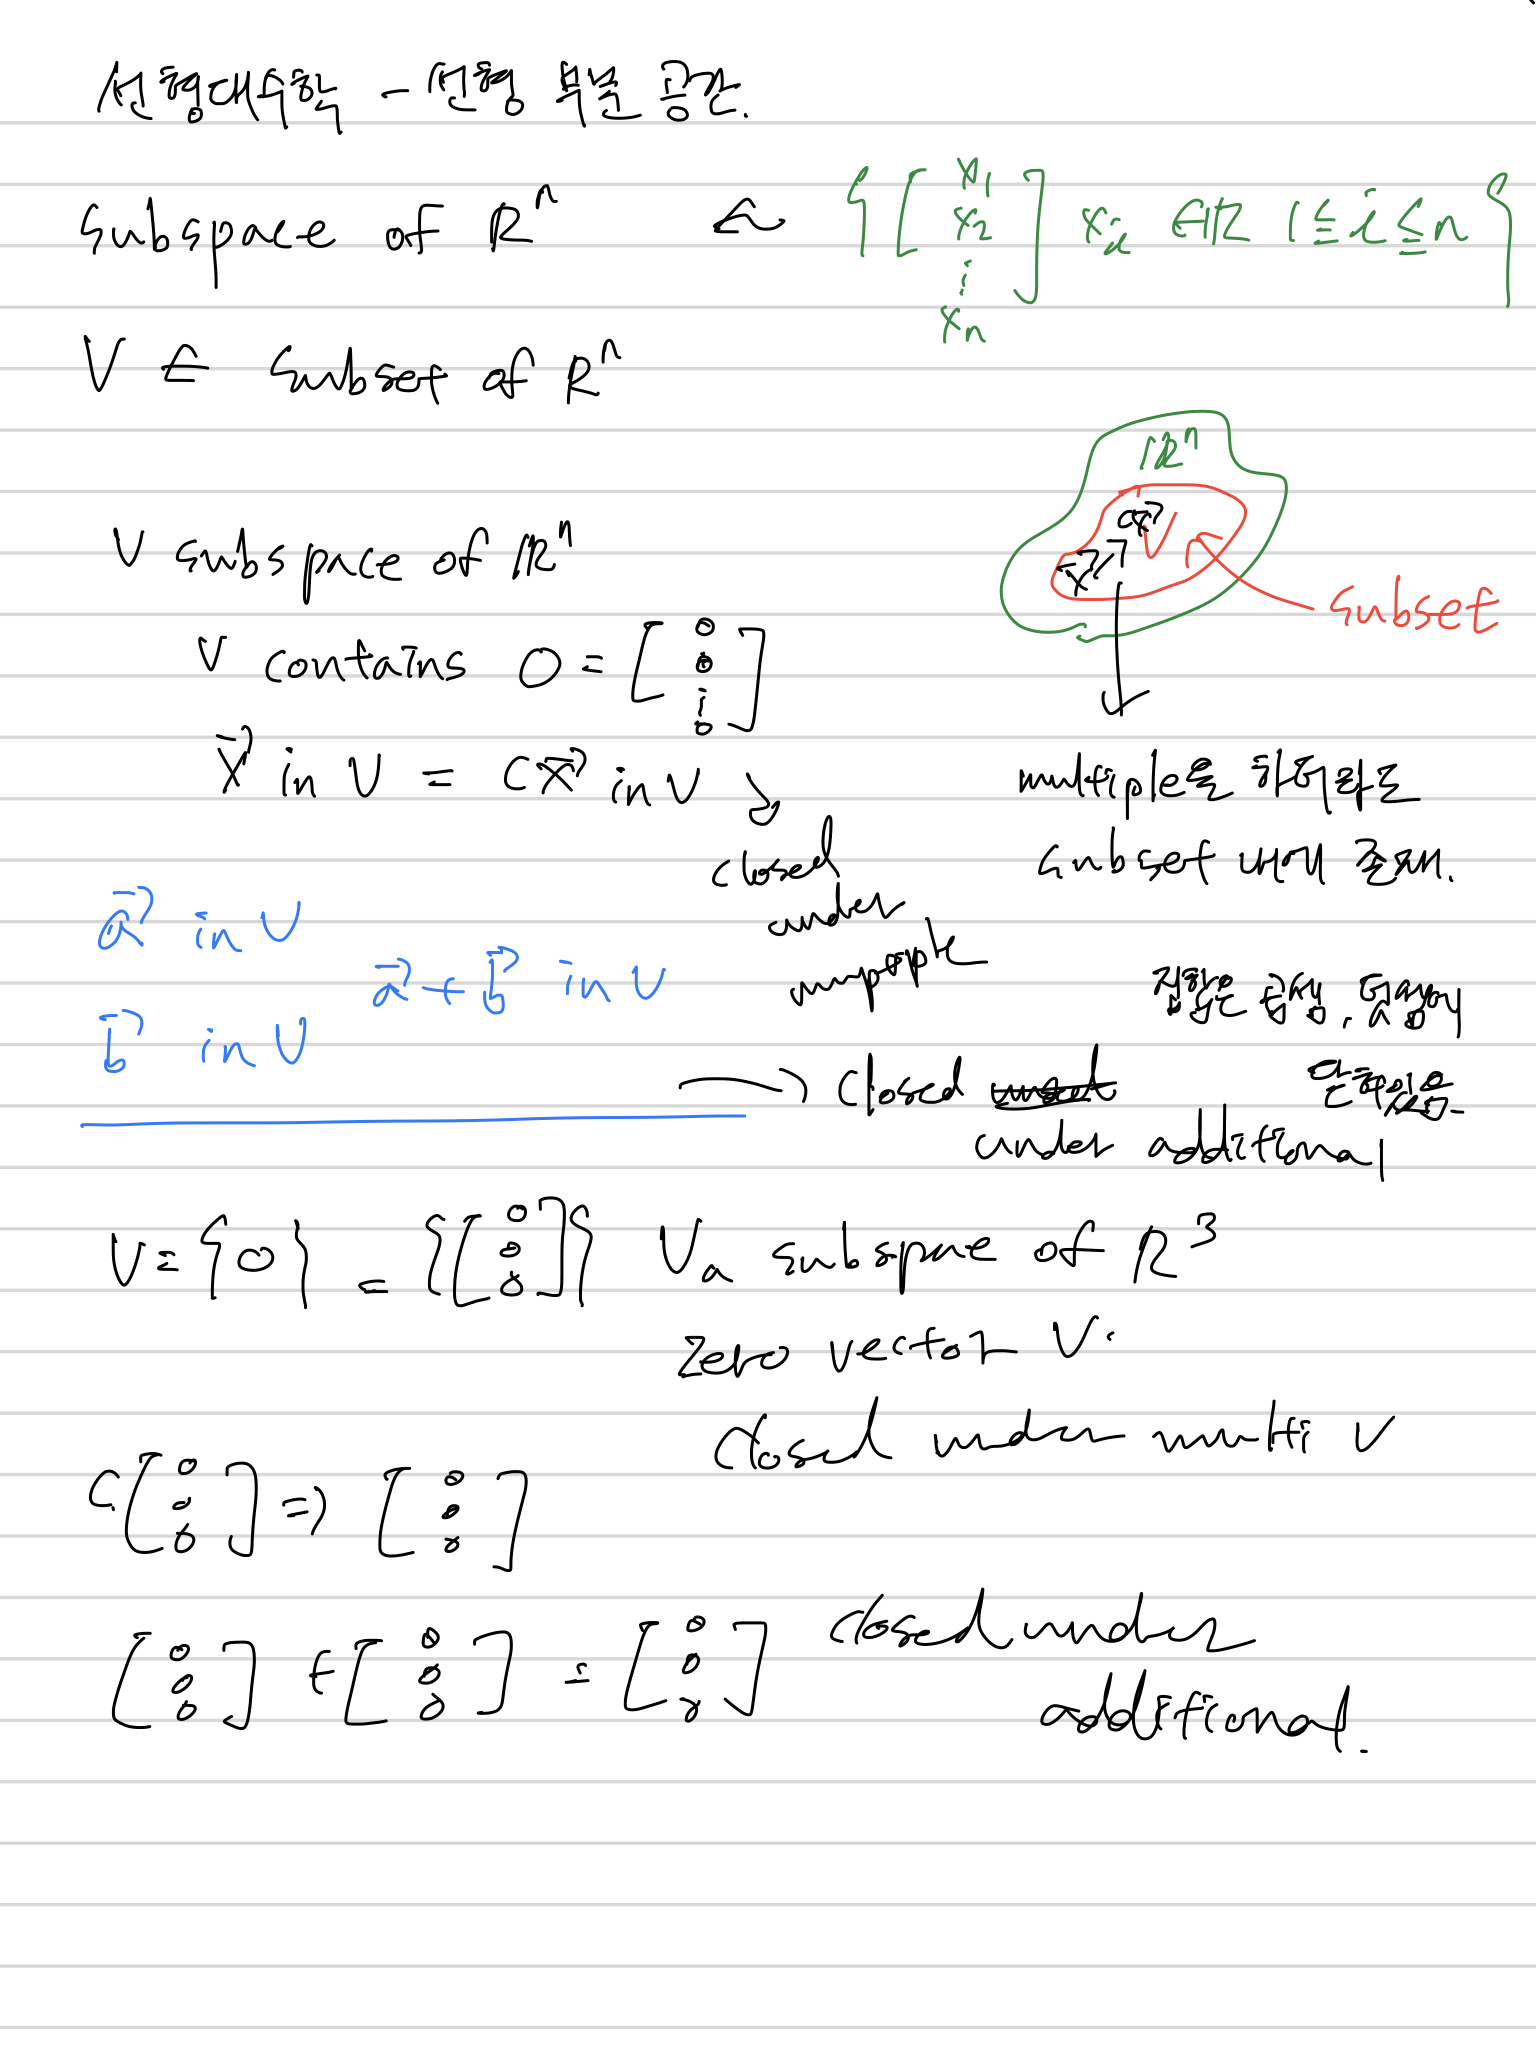 선형대수학 - 선형 부분 공간.
subspace of Rⁿ ← { [x₁ x₂ ⋮ xₙ] xᵢ ∈ ℝ 1 ≦ i ≦ n }
V ⇐ subset of Rⁿ
ℝⁿ
cx⃗ V
x⃗
subset
V subspace of ℝⁿ
V contains 0 = [0 0 ⋮ 0]
x⃗ in V = cx⃗ in V
closed
under
multiple을 하더라도
subset 내에 존재.
a⃗ in V
b⃗ in V
a⃗ + b⃗ in V
집합은 곱셈, 덧셈에
닫혀있음
→ closed
under additional
V = {0} = {[0 0 0]} V a subspace of R³
zero vector V.
closed under multi V
c[0 0 0] ⇒ [0 0 0]
[0 0 0] + [0 0 0] = [0 0 0] closed under
additional.